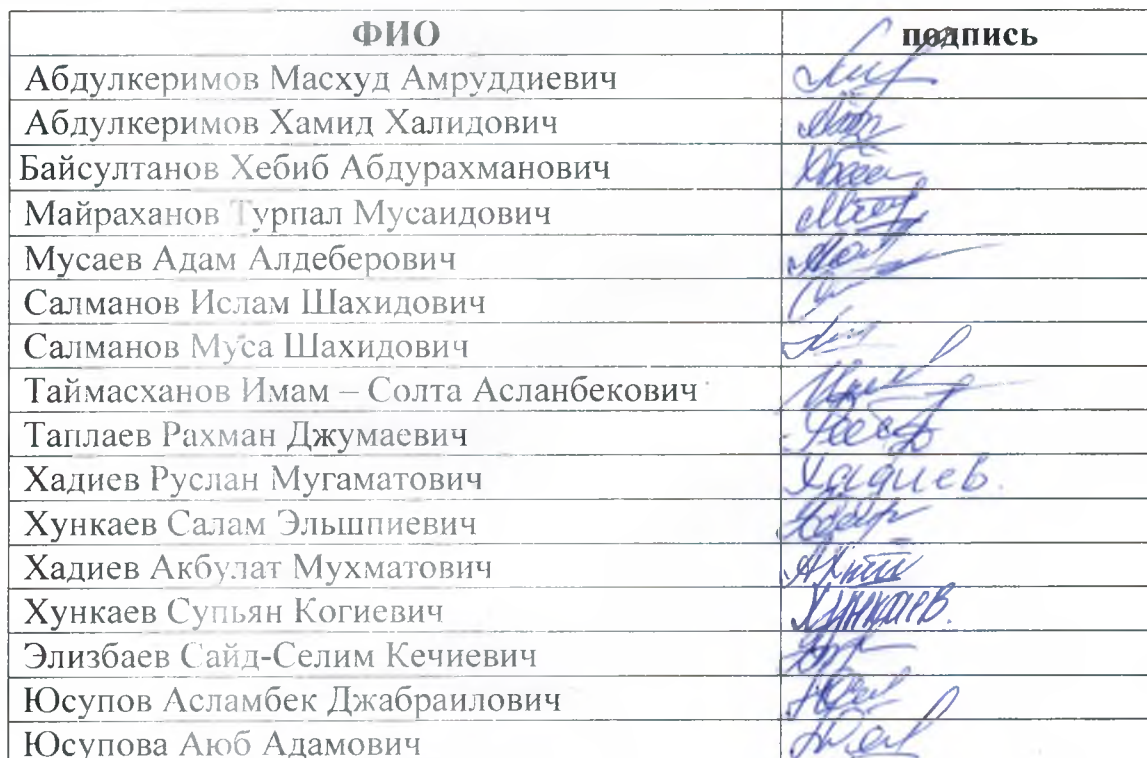 ФИО подпись
Абдулкеримов Масхуд Амруддиевич
Абдулкеримов Хамид Халидович
Байсултанов Хебиб Абдурахманович
Майраханов Турпал Мусаидович
Мусаев Адам Алдеберович
Салманов Ислам Шахидович
Салманов Муса Шахидович
Таймасханов Имам – Солта Асланбекович
Таплаев Рахман Джумаевич
Хадиев Руслан Мугаматович Хадиев.
Хункаев Салам Эльшпиевич
Хадиев Акбулат Мухматович
Хункаев Супьян Когиевич Хункаев.
Элизбаев Сайд-Селим Кечиевич
Юсупов Асламбек Джабраилович
Юсупова Аюб Адамович